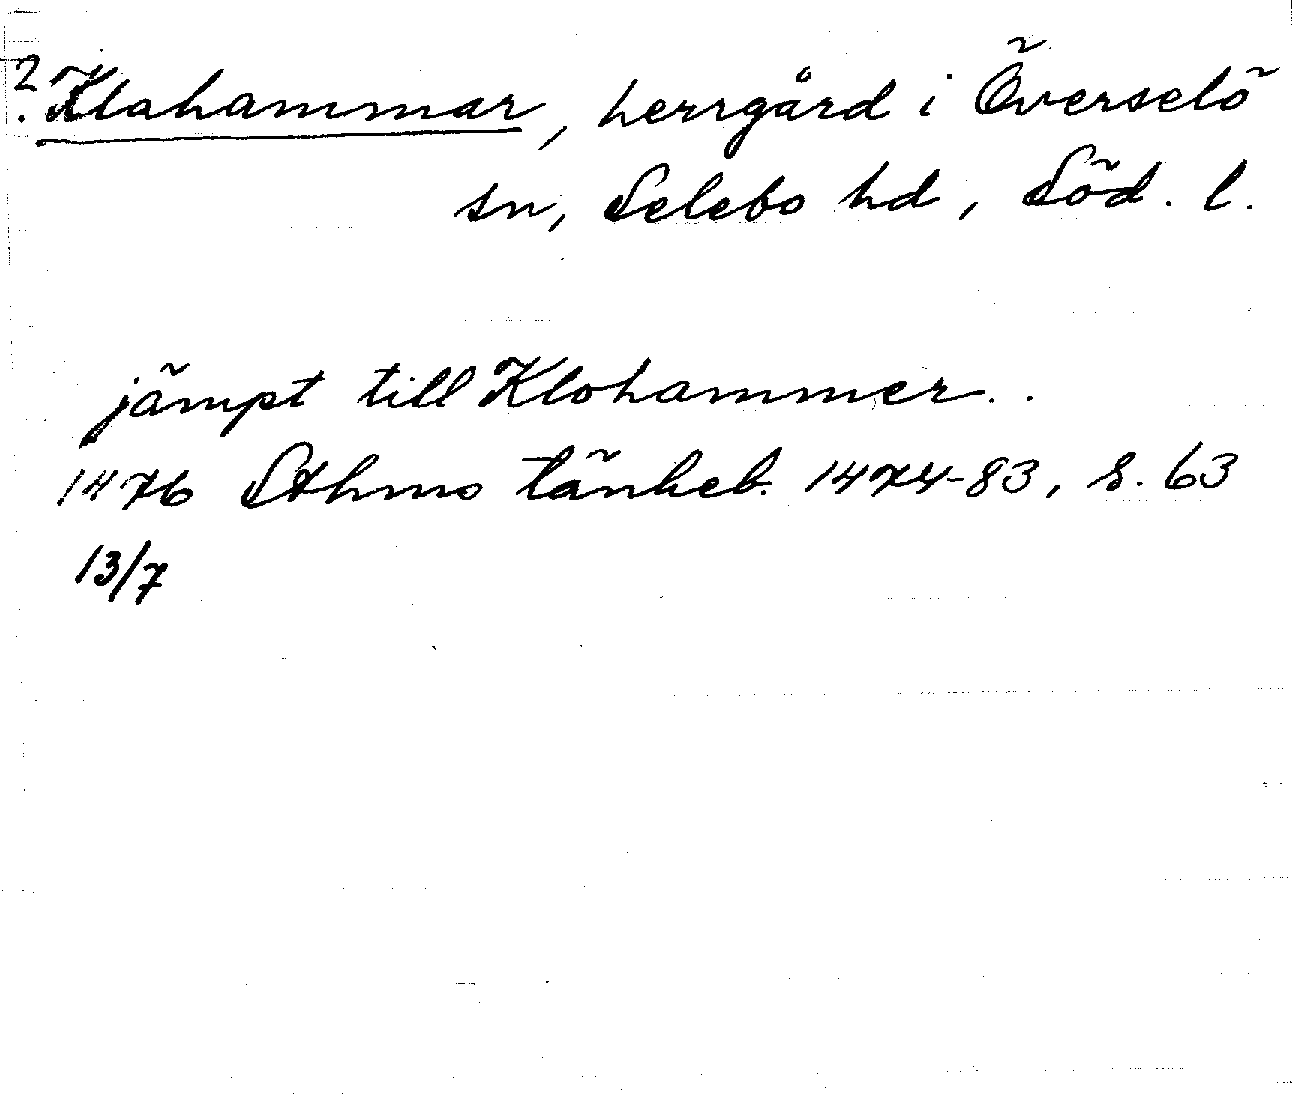 2. Klahammar, herrgård i Överselö
sn, Selebo hd, Söd. l.
jämpt till Klohammer..
1476 Sthmo tänkeb. 1474-83, s. 63
13/7